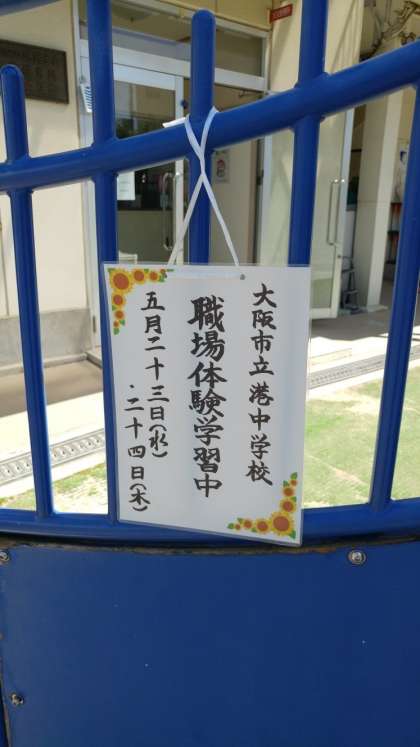 大阪市立港中学校
職場体験学習中
五月二十三日(水)
・二十四日(木)